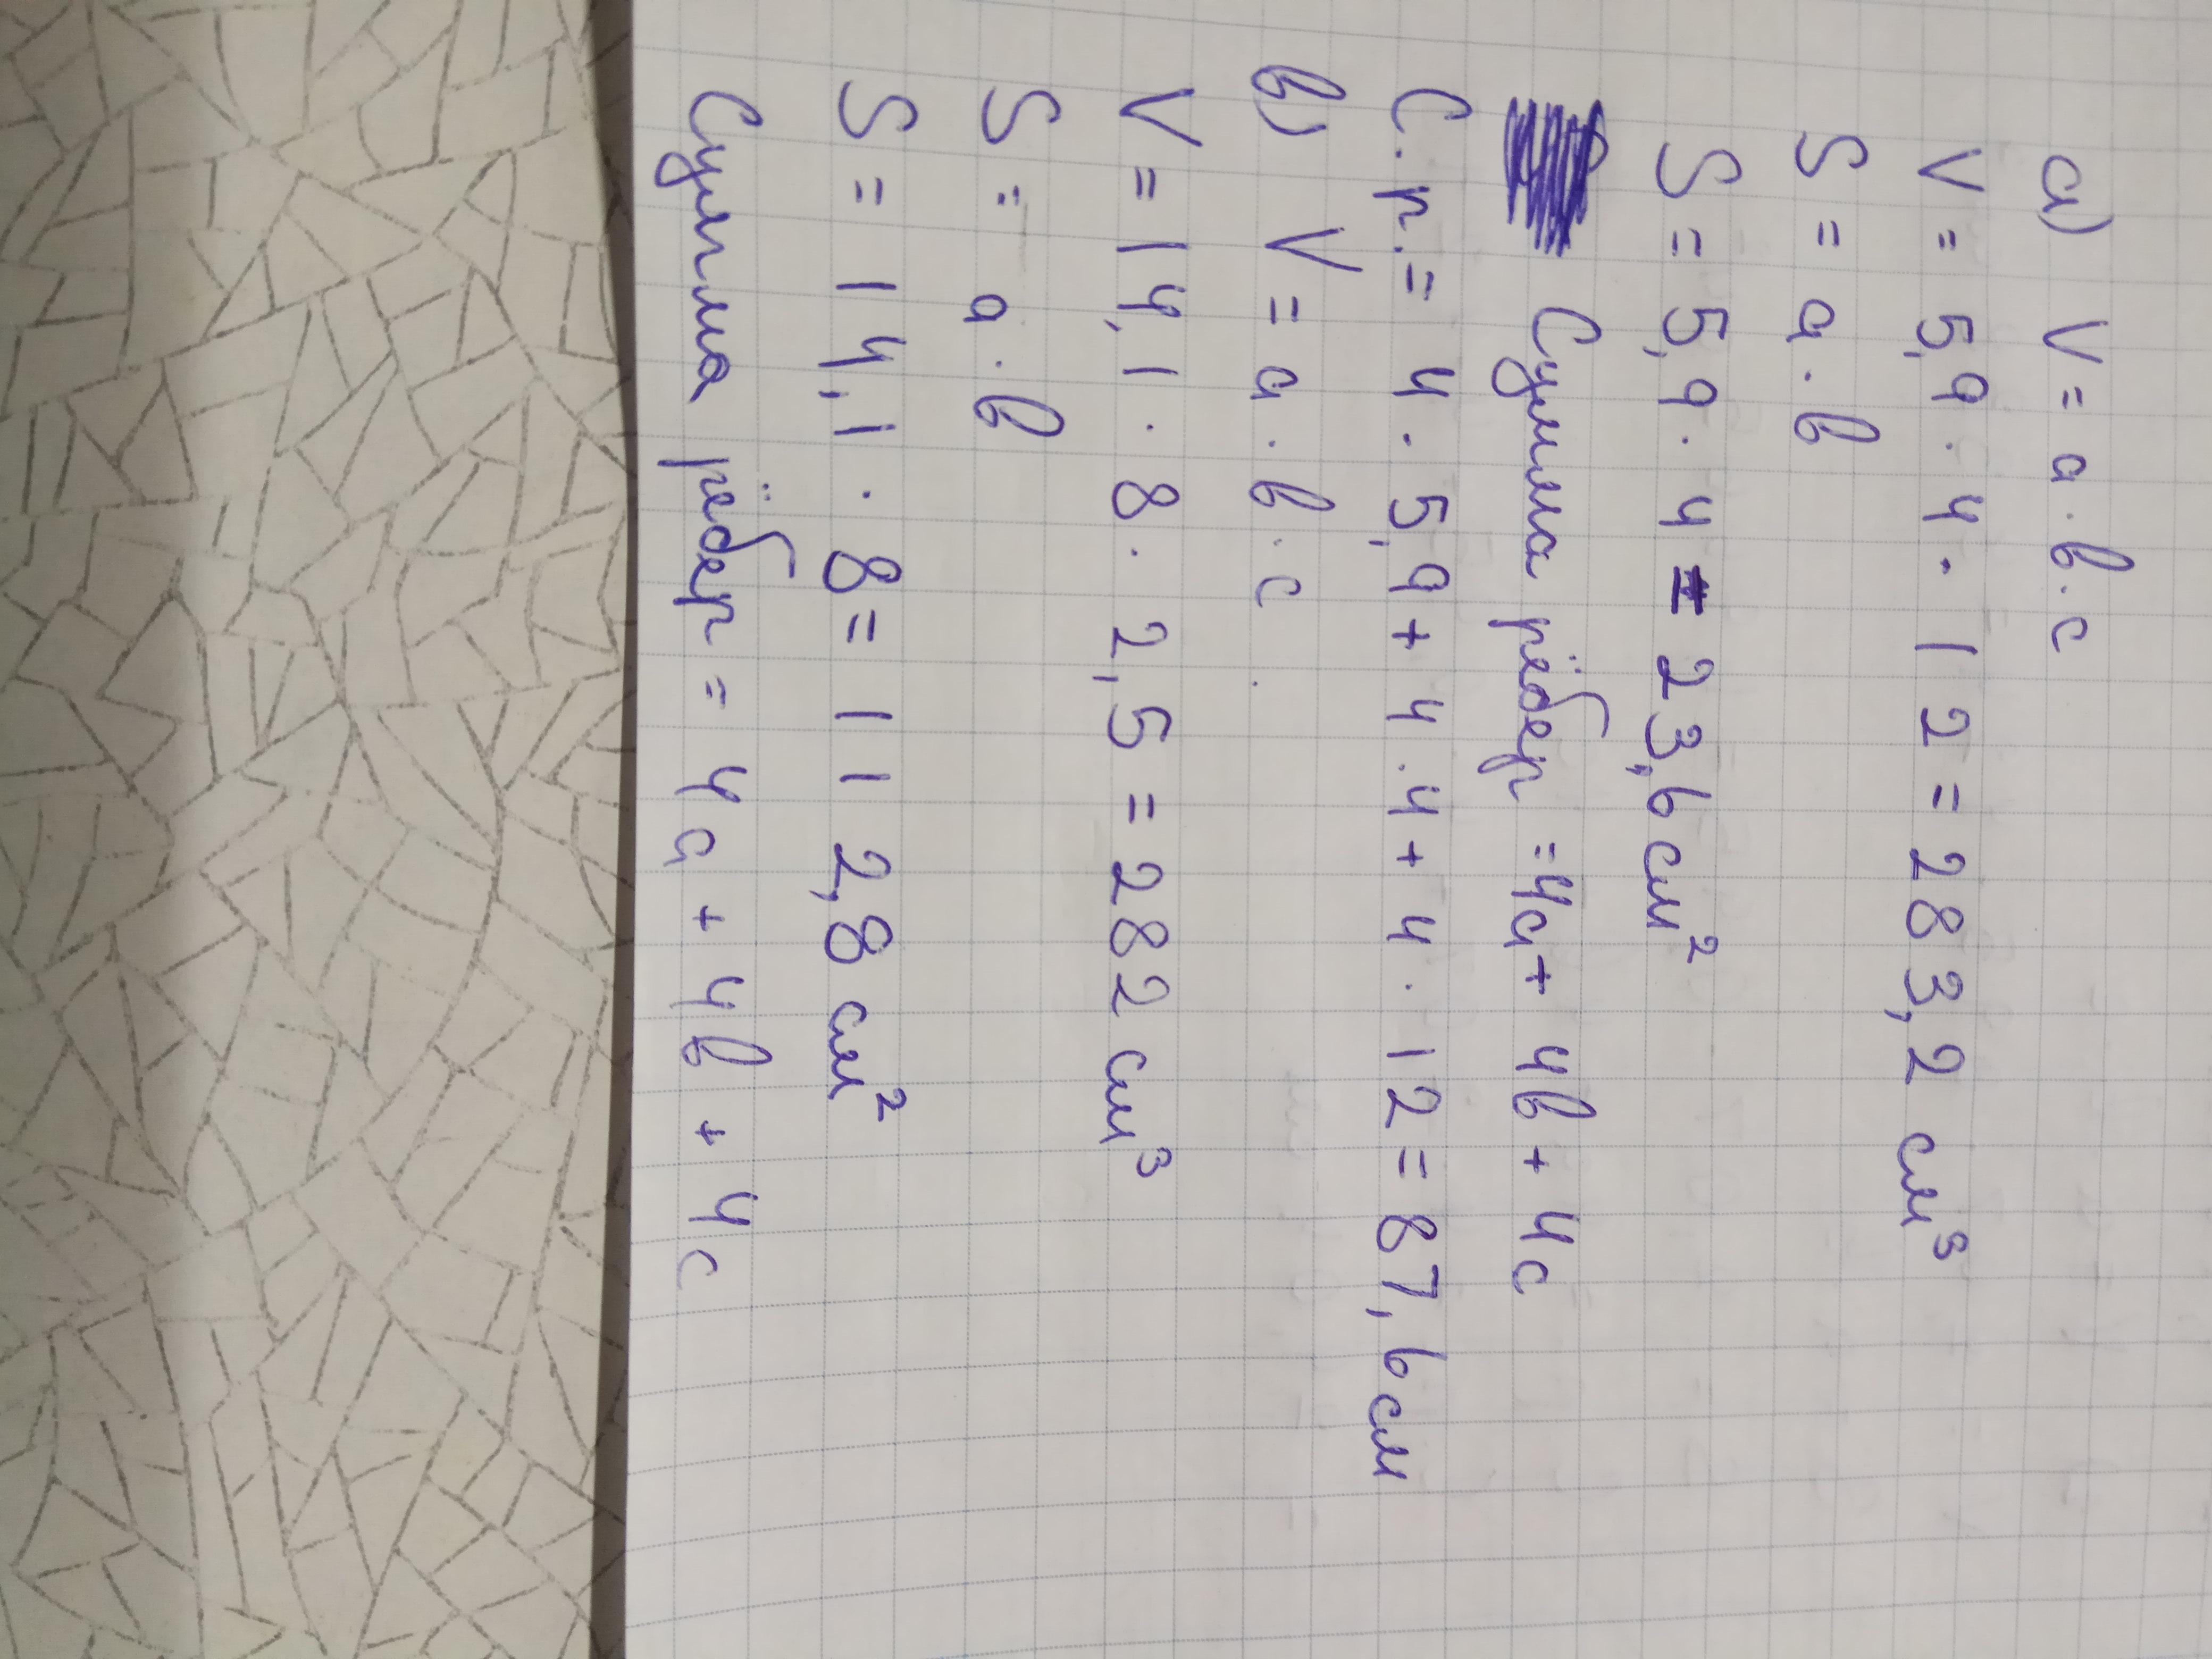 а) V = а · в · с
V = 5,9 · 4 · 12 = 283,2 см³
S = а · в
S = 5,9 · 4 = 23,6 см²
Сумма рёбер = 4а + 4в + 4с
С.р. = 4 · 5,9 + 4 · 4 + 4 · 12 = 87,6 см
в) V = а · в · с
V = 14,1 · 8 · 2,5 = 282 см³
S = а · в
S = 14,1 · 8 = 112,8 см²
Сумма рёбер = 4а + 4в + 4с